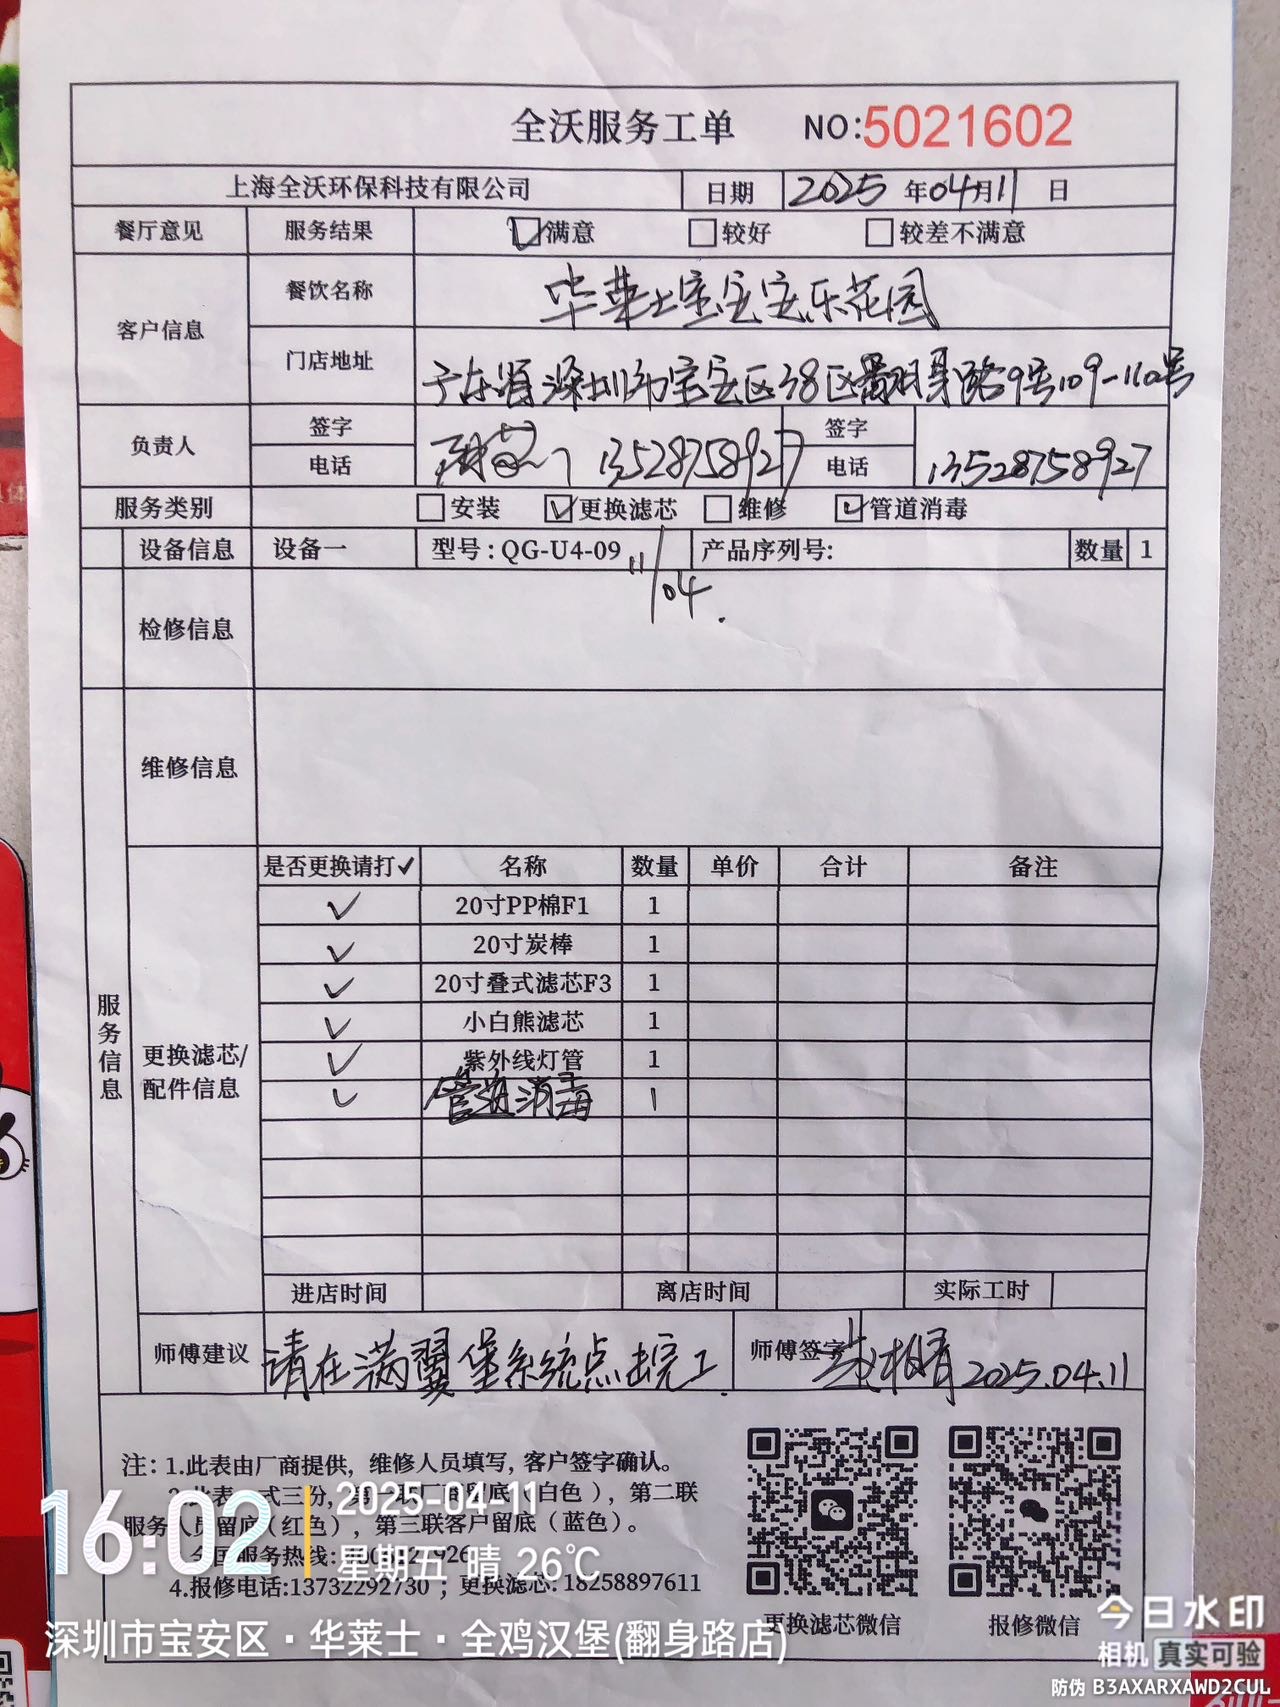 全沃服务工单 NO:5021602
上海全沃环保科技有限公司 日期 2025年04月11日
餐厅意见 服务结果 满意 较好 较差不满意
客户信息 餐饮名称 华莱士宝安安乐花园
门店地址 广东省深圳市宝安区38区翻身路9号109-110号
负责人 签字 签字
电话 13528758927 电话 13528758927
服务类别 安装 更换滤芯 维修 管道消毒
设备信息 设备一 型号:QG-U4-09 产品序列号: 数量 1
11/04.
检修信息
维修信息
服务信息
更换滤芯/配件信息
是否更换请打✓ 名称 数量 单价 合计 备注
✓ 20寸PP棉F1 1
✓ 20寸炭棒 1
✓ 20寸叠式滤芯F3 1
✓ 小白熊滤芯 1
✓ 紫外线灯管 1
✓ 管道消毒 1
进店时间 离店时间 实际工时
师傅建议 请在满翼堡系统点击完工 师傅签字 2025.04.11
注:1.此表由厂商提供,维修人员填写,客户签字确认。
式三份, 留底(白色),第二联
服务人员留底(红色),第三联客户留底(蓝色)。
全国服务热线:
4.报修电话:13732292730;更换滤芯:18258897611
更换滤芯微信 报修微信
16:02 2025-04-11
星期五 晴 26℃
深圳市宝安区·华莱士·全鸡汉堡(翻身路店)
今日水印
相机 真实可验
防伪 B3AXARXAWD2CUL